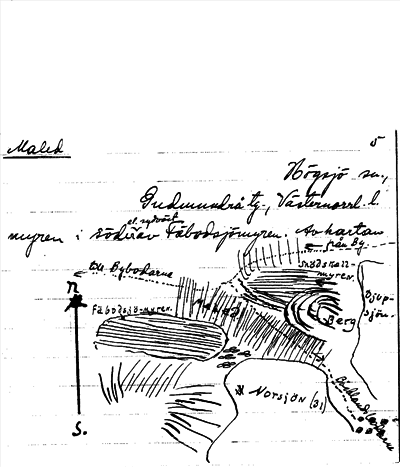 Maled
5
Högsjö sn.,
Gudmundrå tg., Västernorrl. l.
el. sydväst
myren i söder av Fäbodsjömyren. Av kartan
från By.
till Bybodarne
myren.
n
Fäbodsjö-myren.
Maled
Berg
Djup-
sjön.
Norsjön (31)
S.